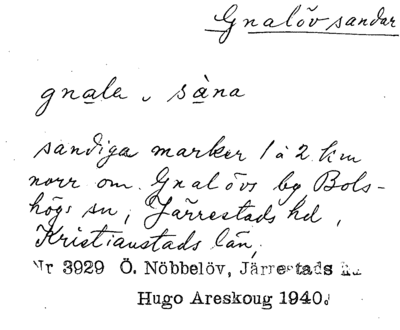 Gnalöv sandar
gnala v sàna
sandiga marker 1 à 2 km
norr om Gnalövs by Bols-
högs sn, Järrestads hd,
Kristianstads län,
Nr 3929 Ö. Nöbbelöv, Järrestads
Hugo Areskoug 1940.